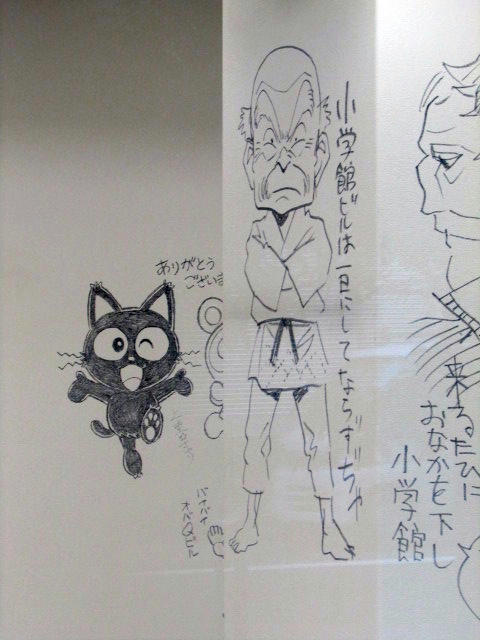 ありがとう
ございま
小学館ビルは一日にしてならずぢゃ
バイバイ
来るたびに
おなかを下し
小学館